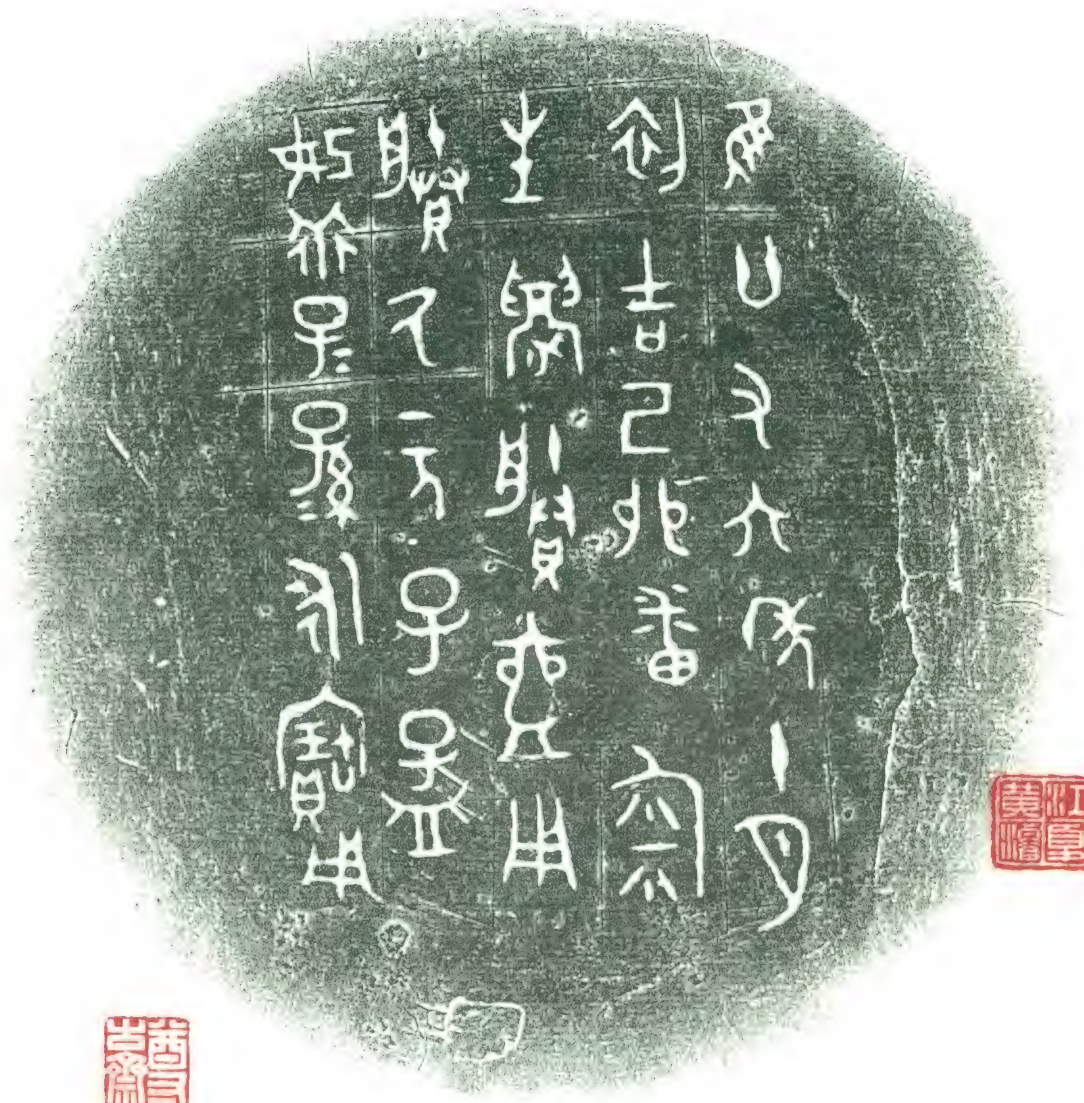 隹廿又六年十月
初吉己卯番匊
生鑄賸壺用
賸氒元子孟
妀乖子=孫=永寶用
江夏黄濬
尊古齋